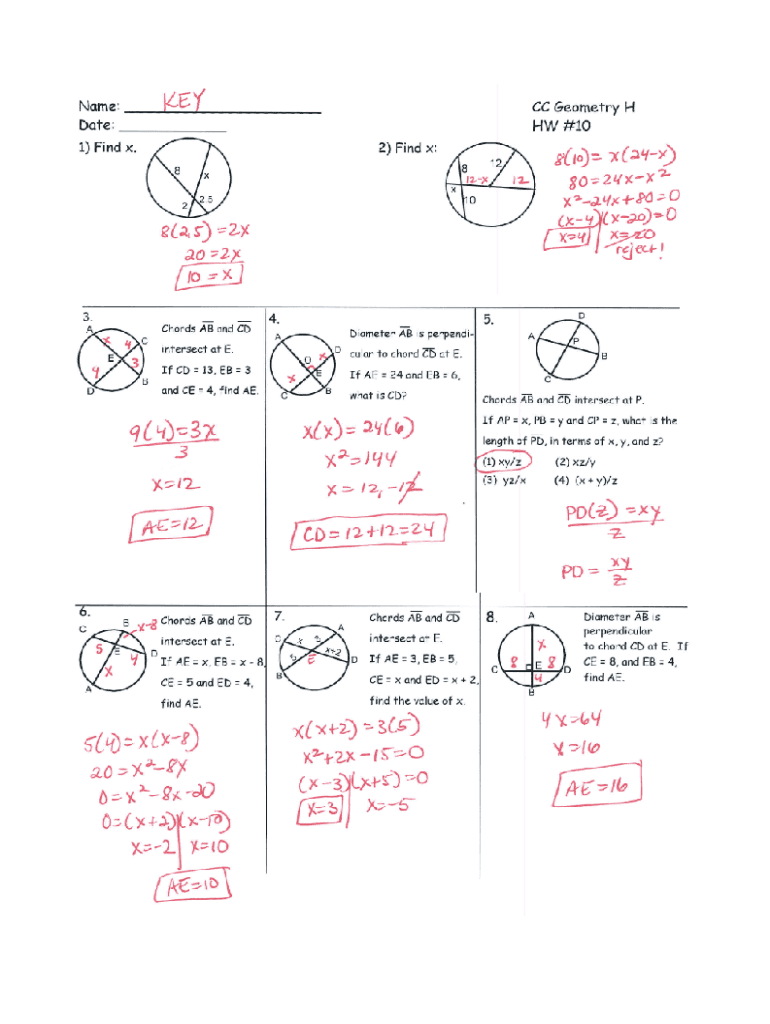 Name: KEY
CC Geometry H
Date:
HW #10
1) Find x.
8
x
2
2.5
8(2.5) = 2x
20 = 2x
10 = x
2) Find x:
8
12
12-x
12
x
10
8(10) = x(24-x)
80 = 24x - x²
x² - 24x + 80 = 0
(x-4)(x-20) = 0
x=4
x=20
reject!
3.
A
x
4
C
E
3
4
D
B
Chords AB and CD
intersect at E.
If CD = 13, EB = 3
and CE = 4, find AE.
9(4) = 3x
3
x=12
AE=12
4.
A
O
x
D
x
E
C
B
Diameter AB is perpendi-
cular to chord CD at E.
If AE = 24 and EB = 6,
what is CD?
x(x) = 24(6)
x² = 144
x = 12, -12
CD = 12+12 = 24
5.
D
A
P
B
C
Chords AB and CD intersect at P.
If AP = x, PB = y and CP = z, what is the
length of PD, in terms of x, y, and z?
(1) xy/z (2) xz/y
(3) yz/x (4) (x + y)/z
PD(z) = xy
z
PD = xy
z
6.
C
B
x-8
5
E
4
D
x
A
Chords AB and CD
intersect at E.
If AE = x, EB = x - 8,
CE = 5 and ED = 4,
find AE.
5(4) = x(x-8)
20 = x² - 8x
0 = x² - 8x - 20
0 = (x+2)(x-10)
x=-2
x=10
AE=10
7.
A
x
3
x+2
5
E
D
B
Chords AB and CD
intersect at E.
If AE = 3, EB = 5,
CE = x and ED = x + 2,
find the value of x.
x(x+2) = 3(5)
x² + 2x - 15 = 0
(x-3)(x+5) = 0
x=3
x=-5
8.
A
x
8
E
8
C
D
4
B
Diameter AB is
perpendicular
to chord CD at E. If
CE = 8, and EB = 4,
find AE.
4x = 64
x = 16
AE = 16